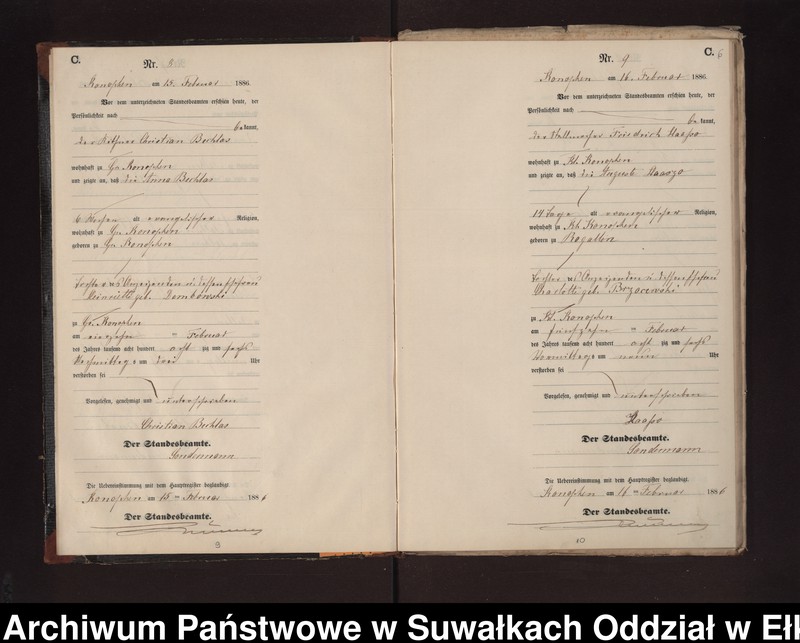 C.
Nr. 8
Konophen am 15. Februar 1886.
Vor dem unterzeichneten Standesbeamten erschien heute, der
Persönlichkeit nach
be kannt,
der Christian Bechlas
wohnhaft zu Gr. Konophen
und zeigte an, daß die Anna Bechlas
6 Wochen alt evangelischer Religion,
wohnhaft zu Gr. Konophen
geboren zu Gr. Konophen
Tochter des Anzeigenden u. dessen Ehefrau
Henriette geb. Dombowski
zu Gr. Konophen
am Februar
des Jahres tausend acht hundert acht zig und sechs
Nachmittags um drei Uhr
verstorben sei
Vorgelesen, genehmigt und unterschrieben
Christian Bechlas
Der Standesbeamte.
Die Uebereinstimmung mit dem Hauptregister beglaubigt.
Konophen am 15 ten Februar 1886
Der Standesbeamte.
9
C. 6
Nr. 9
Konophen am 16. Februar 1886.
Vor dem unterzeichneten Standesbeamten erschien heute, der
Persönlichkeit nach
be kannt,
der Friedrich
wohnhaft zu Kl. Konophen
und zeigte an, daß die Auguste
14 Tage alt evangelischer Religion,
wohnhaft zu Kl. Konophen
geboren zu Rogallen
Tochter des Anzeigenden u. dessen Ehefrau
Charlotte geb.
zu Kl. Konophen
am fünfzehn Februar
des Jahres tausend acht hundert acht zig und sechs
Vormittags um neun Uhr
verstorben sei
Vorgelesen, genehmigt und unterschrieben
Der Standesbeamte.
Die Uebereinstimmung mit dem Hauptregister beglaubigt.
Konophen am 16 ten Februar 1886
Der Standesbeamte.
10
Archiwum Państwowe w Suwałkach Oddział w Eł